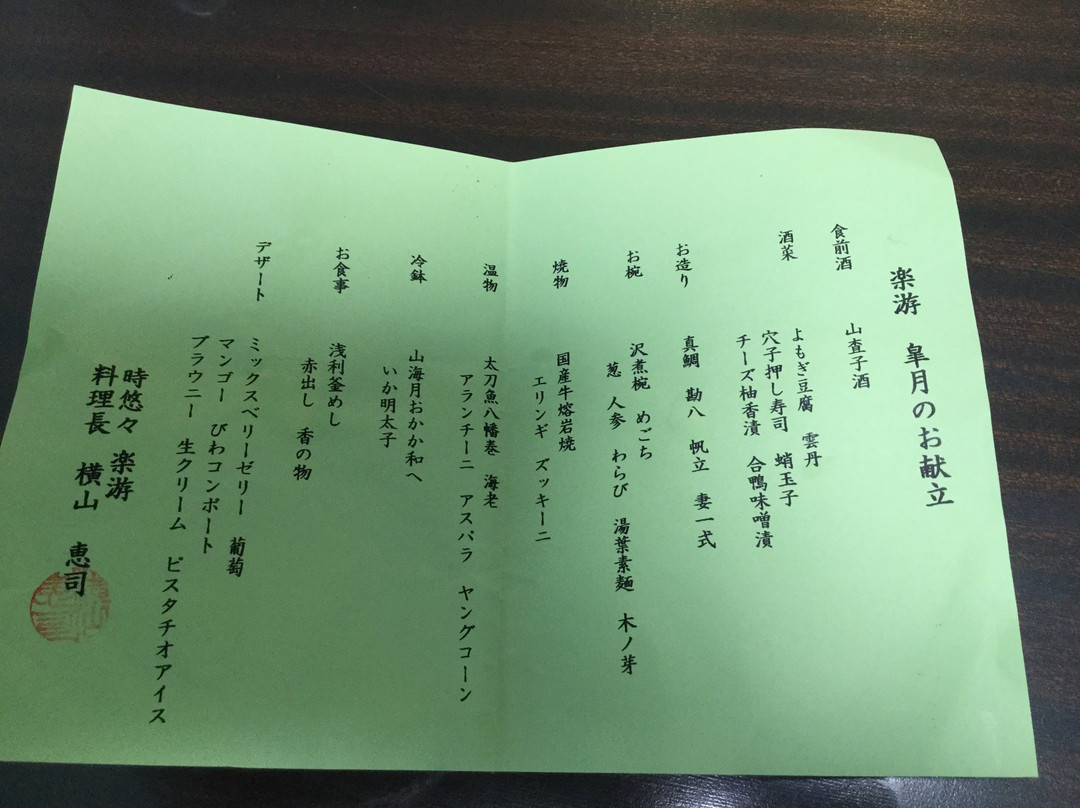 楽游 皐月のお献立
食前酒
山査子酒
酒菜
よもぎ豆腐 雲丹
穴子押し寿司 蛸玉子
チーズ柚香漬 合鴨味噌漬
お造り
真鯛 勘八 帆立 妻一式
お椀
沢煮椀 めごち
葱 人参 わらび 湯葉素麺 木ノ芽
焼物
国産牛熔岩焼
エリンギ ズッキーニ
温物
太刀魚八幡巻 海老
アランチーニ アスパラ ヤングコーン
冷鉢
山海月おかか和へ
いか明太子
お食事
浅利釜めし
赤出し 香の物
デザート
ミックスベリーゼリー 葡萄
マンゴー びわコンポート
ブラウニー 生クリーム ピスタチオアイス
時悠々 楽游
料理長 横山 恵司